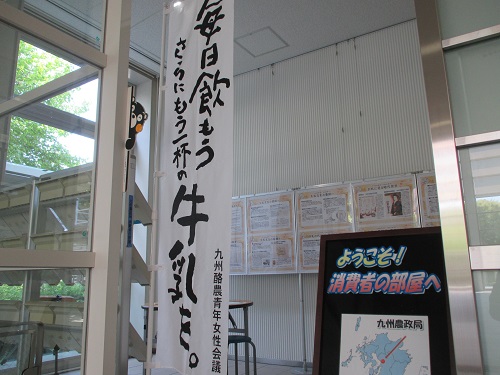 毎日飲もう
さらにもう一杯の
牛乳を。
九州酪農青年女性会議
ようこそ!
消費者の部屋へ
九州農政局